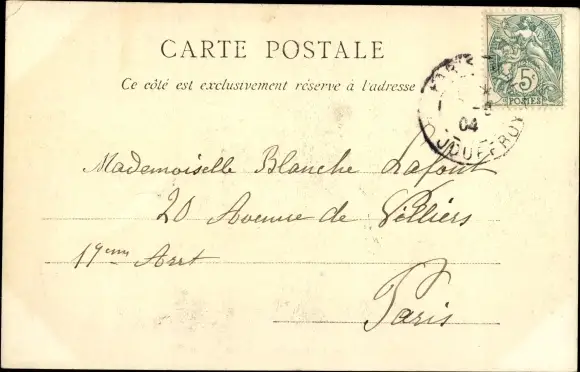 CARTE POSTALE
Ce côté est exclusivement réservé à l'adresse
5c
POSTES
04
JOUFFROY
Mademoiselle Blanche Lafont
20 Avenue de Villiers
17eme Arrt
Paris